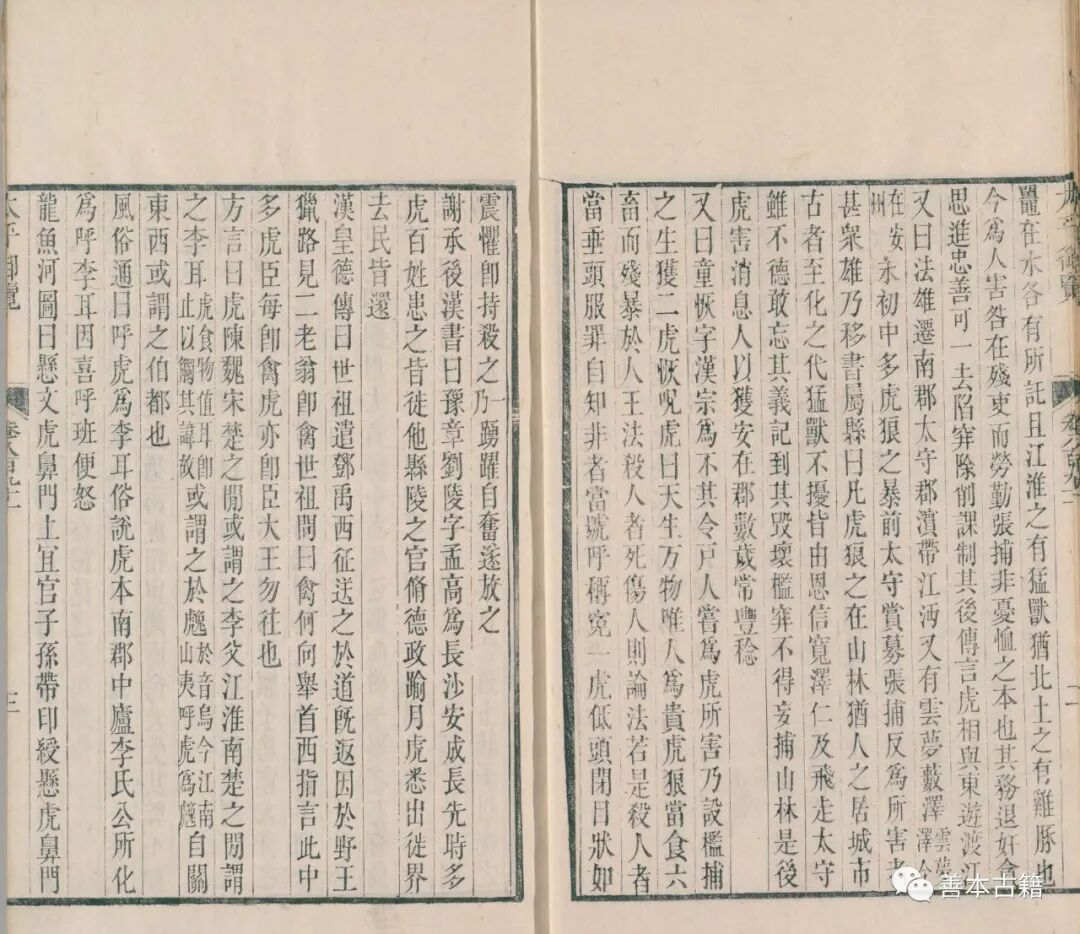 黿在水各有所託且江淮之有猛獸猶北土之有雞豚也
今為人害咎在殘吏而勞勤張捕非憂恤之本也其務退奸貪
思進忠善可一去陷穽除削課制其後傳言虎相與東遊渡江
又曰法雄遷南郡太守郡濵帶江沔又有雲夢藪澤雲夢澤今
在安州永初中多虎狼之暴前太守賞募張捕反爲所害者
甚衆雄乃移書屬縣曰凡虎狼之在山林猶人之居城市
古者至化之代猛獸不擾皆由恩信寬澤仁及飛走太守
雖不德敢忘其義記到其毀壞檻穽不得妄捕山林是後
虎害消息人以獲安在郡數歲常豐稔
又曰童恢字漢宗爲不其令戸人嘗爲虎所害乃設檻捕
之生獲二虎恢呪虎曰天生万物唯人爲貴虎狼當食六
畜而殘暴於人王法殺人者死傷人則論法若是殺人者
當垂頭服罪自知非者當號呼稱寃一虎低頭閉目狀如
卷八百九十二
二
震懼卽持殺之一乃踴躍自奮遂放之
謝承後漢書曰豫章劉陵字孟高爲長沙安成長先時多
虎百姓患之皆徙他縣陵之官脩德政踰月虎悉出徙界
去民皆還
漢皇德傳曰世祖遣鄧禹西征送之於道旣返因於野王
獵路見二老翁卽禽世祖問曰禽何向舉首西指言此中
多虎臣每卽禽虎亦卽臣大王勿往也
方言曰虎陳魏宋楚之間或謂之李父江淮南楚之間謂
之李耳虎食物值耳卽止以觸其諱故或謂之於䖘於音烏今江南山夷呼虎爲䖘自關
東西或謂之伯都也
風俗通曰呼虎爲李耳俗說虎本南郡中廬李氏公所化
爲呼李耳因喜呼班便怒
龍魚河圖曰懸文虎鼻門上宜官子孫帶印綬懸虎鼻門
太平御覽
卷八百九十二
三
善本古籍